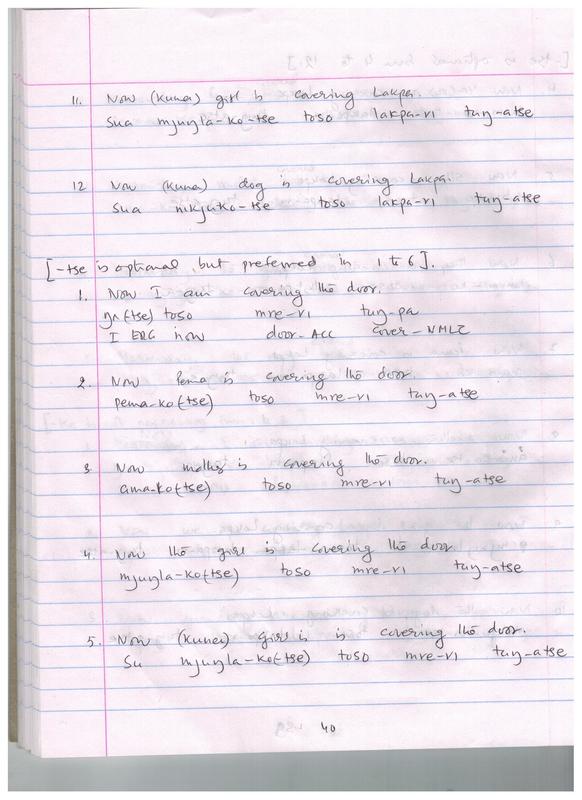 11. Now (kuna) girl is covering Lakpa.
sua mjuŋla-ko-tse toso lakpa-ri tuŋ-atse
12 Now (kuna) dog is covering Lakpa.
sua nikjuko-tse toso lakpa-ri tuŋ-atse
[-tse is optional, but preferred in 1 to 6].
1. Now I am covering the door.
ŋa(tse) toso mre-ri tuŋ-pa
I ERG now door-ACC cover-NMLZ
2. Now Pema is covering the door.
pema-ko(tse) toso mre-ri tuŋ-atse
3. Now mother is covering the door.
ama-ko(tse) toso mre-ri tuŋ-atse
4. Now the girl is covering the door.
mjuŋla-ko(tse) toso mre-ri tuŋ-atse
5. Now (kuna) girl is is covering the door.
su mjuŋla-ko(tse) toso mre-ri tuŋ-atse
40